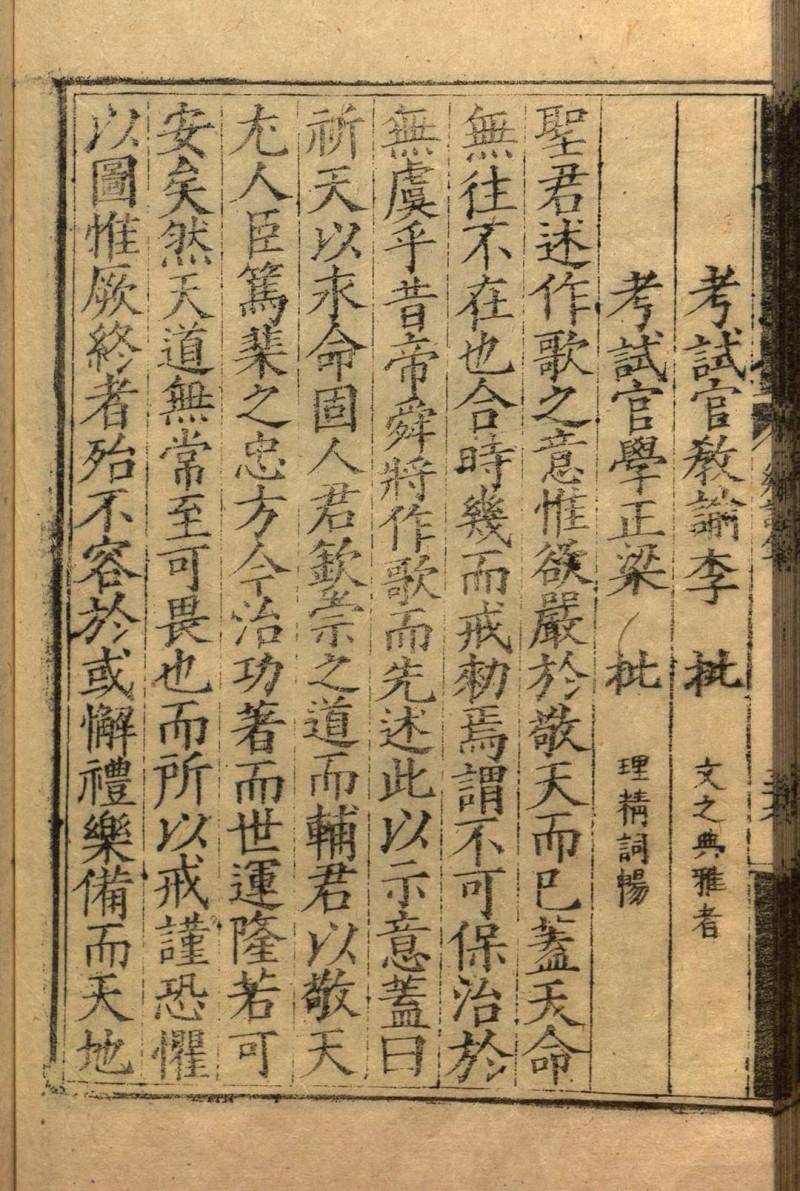 考試官教諭李 批 文之典雅者
考試官學正梁 批 理精詞暢
聖君述作歌之意惟欲嚴於敬天而已蓋天命
無往不在也合時幾而戒勑焉謂不可保治於
無虞乎昔帝舜將作歌而先述此以示意蓋曰
祈天以永命固人君欽崇之道而輔君以敬天
尤人臣篤棐之忠方今治功著而世運隆若可
安矣然天道無常至可畏也而所以戒謹恐懼
以圖惟厥終者殆不容於或懈禮樂備而天地